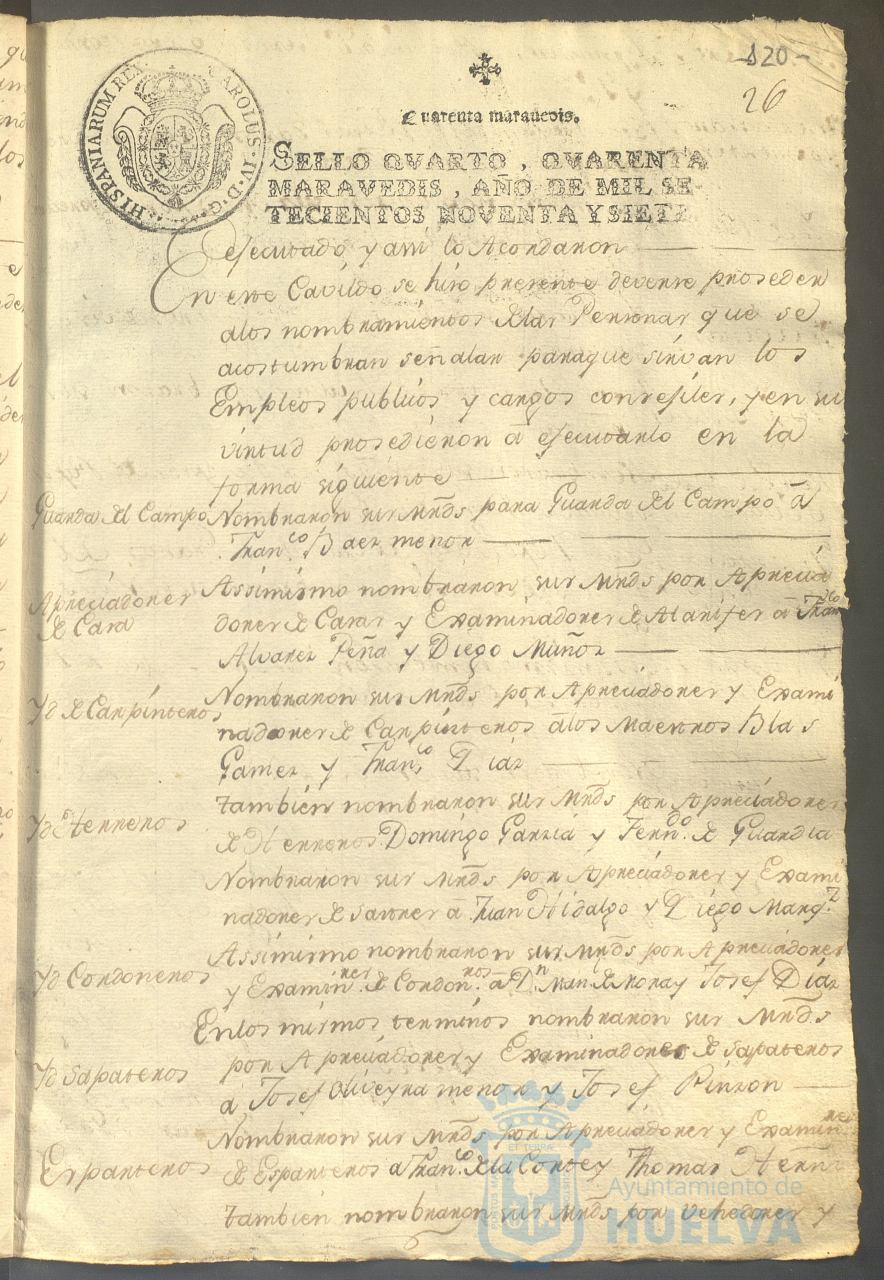 -120-
26
HISPANIARUM REX. CAROLUS. IV. D. G.
Quarenta maravedis.
SELLO QVARTO, QVARENTA
MARAVEDIS, AÑO DE MIL SE-
TECIENTOS NOVENTA Y SIETE
ejecutado y asi lo Acordaron
En este Cavildo se hiso presente deverse proseder
alos nombramientos de las Personas que se
acostumbran señalar paraque sirvan los
Empleos publicos y cargos consejiles, y en su
virtud prosedieron a ejecutarlo en la
forma siguiente
Guarda del Campo
Nombraron sus Mrds para Guarda del Campo a
Franco Baez menor
Apreciadores
de Casa
Assimismo nombraron sus Mrds por Aprecia
dores de Casas y Examinadores de Alarifes a Franco
Alvarez Peña y Diego Muñoz
Yd de Carpinteros
Nombraron sus Mrds por Apreciadores y Exami
nadores de Carpinteros alos Maestros Blas
Gamez y Franco Diaz
Yd Herreros
tambien nombraron sus Mrds por Apreciadores
de Herreros Domingo Garzia y Ferndo de Guardia
Nombraron sus Mrds por Apreciadores y Exami
nadores de Sastres a Juan Hidalgo y Diego Marqz
Yd Cordoneros
Assimismo nombraron sus Mrds por Apreciadores
y Examinres de Cordonros a Dn Man. de Mora y Josef Diaz
En los mismos terminos nombraron sus Mrds
Yd Sapateros
por Apreciadores y Examinadores de Sapateros
a Josef Oliveyra menor y Josef Pinzon
Nombraron sus Mrds por Apreciadores y Examinres
Esparteros
de Esparteros a Franco de la Corte y Thomas Hern
tambien nombraron sus Mrds por Vehedores y
Ayuntamiento de
HUELVA